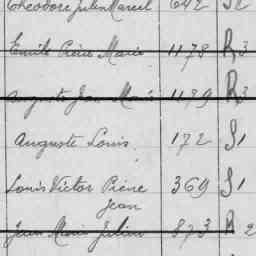 Théodore Julien Marcel 642 S2
Emile Pierre Marie 1178 R3
Auguste Jean Marie 1179 R3
Auguste Louis 172 S1
Louis Victor Pierre 369 S1
Jean
Jean Marie Julien 873 R 2